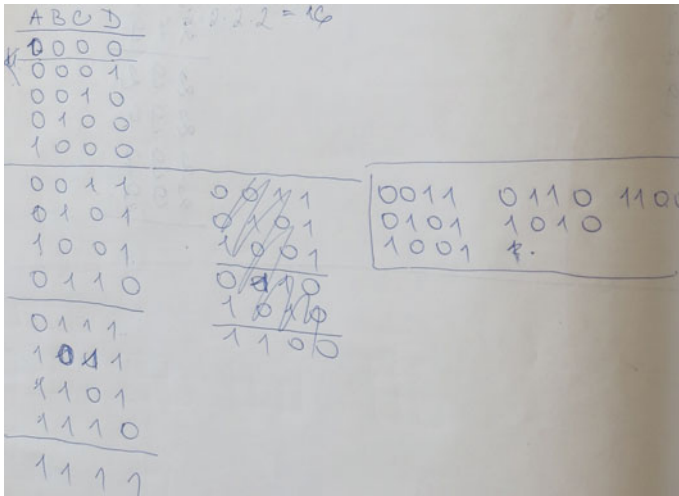 A B C D
2·2·2·2 = 16
0 0 0 0
0 0 0 1
0 0 1 0
0 1 0 0
1 0 0 0
0 0 1 1
0 1 0 1
1 0 0 1
0 1 1 0
0 1 1 1
1 0 1 1
1 1 0 1
1 1 1 0
1 1 1 1
0 0 1 1
0 1 0 1
1 0 0 1
0 1 1 0
1 0 1 0
1 1 0 0
0011 0110 110
0101 1010
1001